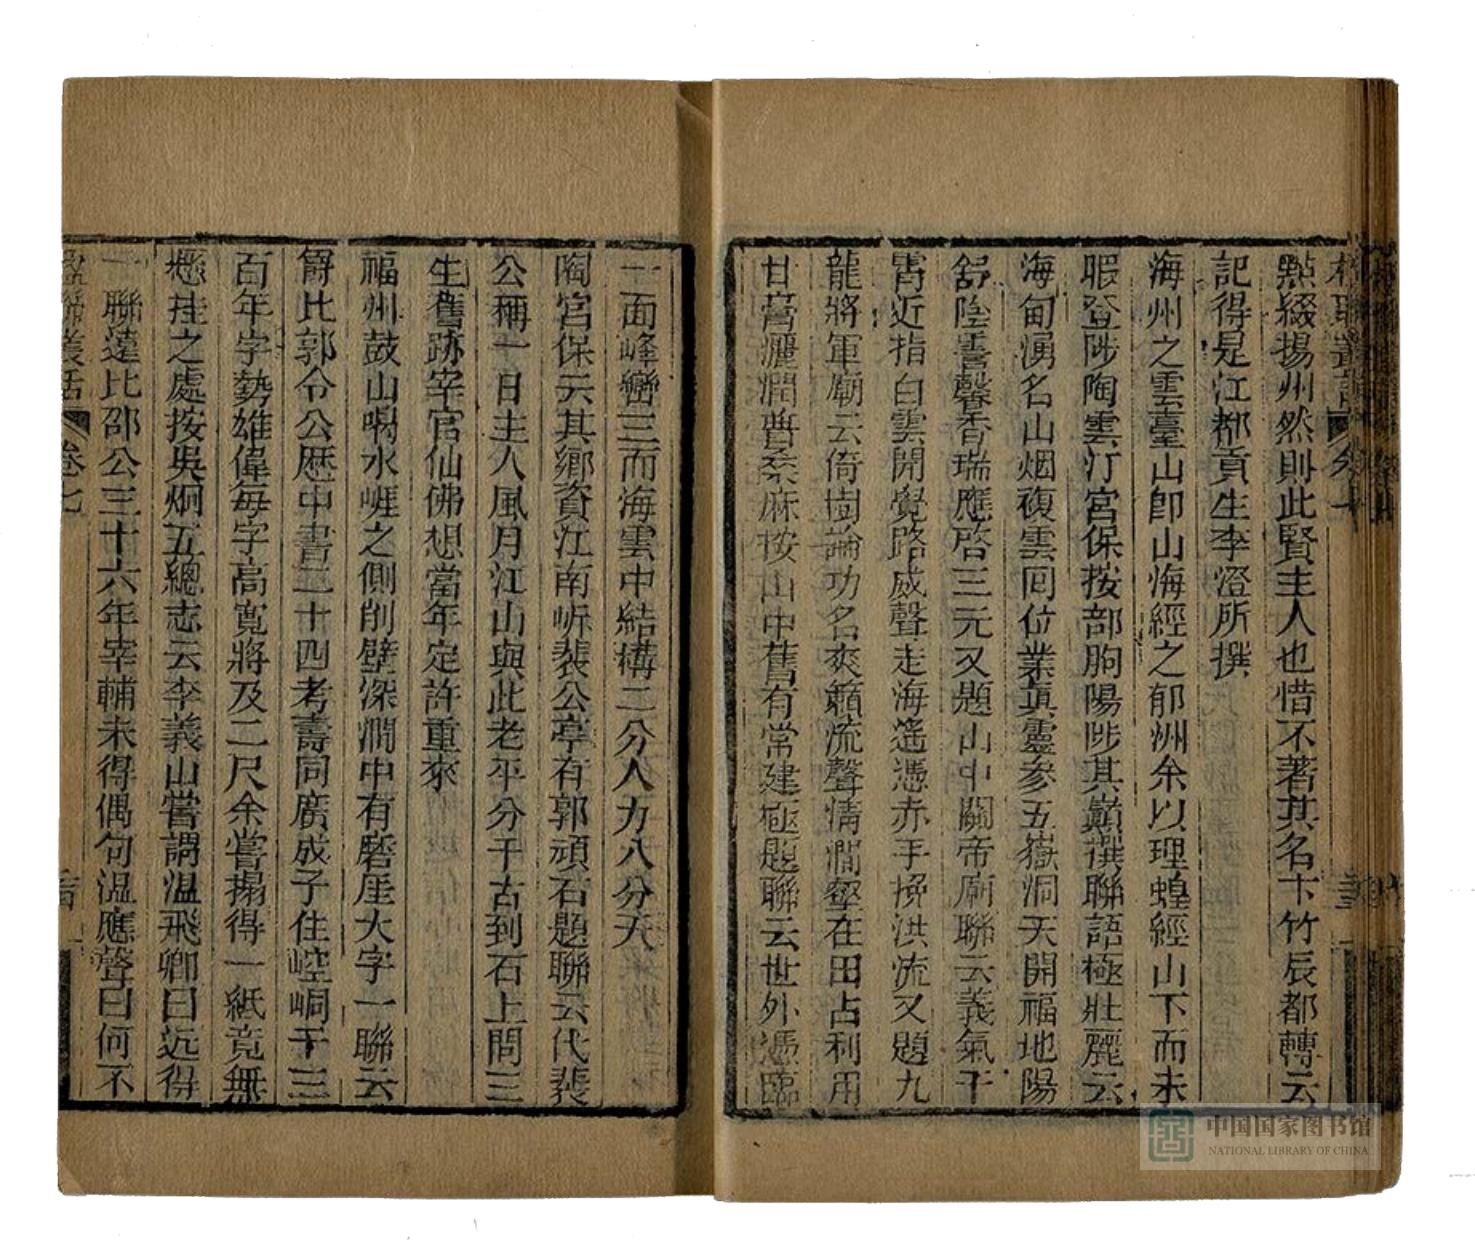 點綴揚州然則此賢主人也惜不著其名卞竹辰都轉云
記得是江都貢生李澄所撰
海州之雲臺山卽山海經之郁洲余以理蝗經山下而未
暇登陟陶雲汀宮保按部朐陽陟其巔撰聯語極壯麗云
海甸湧名山烟複雲回位業眞靈參五嶽洞天開福地陽
舒陰靈馨香瑞應啓三元又題山中關帝廟聯云義氣干
霄近指白雲開覺路威聲走海遙憑赤手挽洪流又題九
龍將軍廟云倚樹論功名爽籟流聲情澗壑在田占利用
甘膏灑潤曹桑麻按山中舊有常建極題聯云世外憑臨
一面峰巒三面海雲中結構二分人力八分天
陶宮保云其鄉資江南岍裴公亭有郭頑石題聯云代裴
公稱一日主人風月江山與此老平分千古到石上問三
生舊跡宰官仙佛想當年定許重來
福州鼓山喝水崕之側削壁深澗中有磨厓大字一聯云
爵比郭令公歷中書二十四考壽同廣成子住崆峒千三
百年字勢雄偉每字高寬將及二尺余嘗搨得一紙竟無
懸挂之處按吳炯五總志云李義山嘗謂溫飛卿曰近得
一聯遠比邵公三十六年宰輔未得偶句溫應聲曰何不
楹聯叢話
卷七
中国国家图书馆
NATIONAL LIBRARY OF CHINA